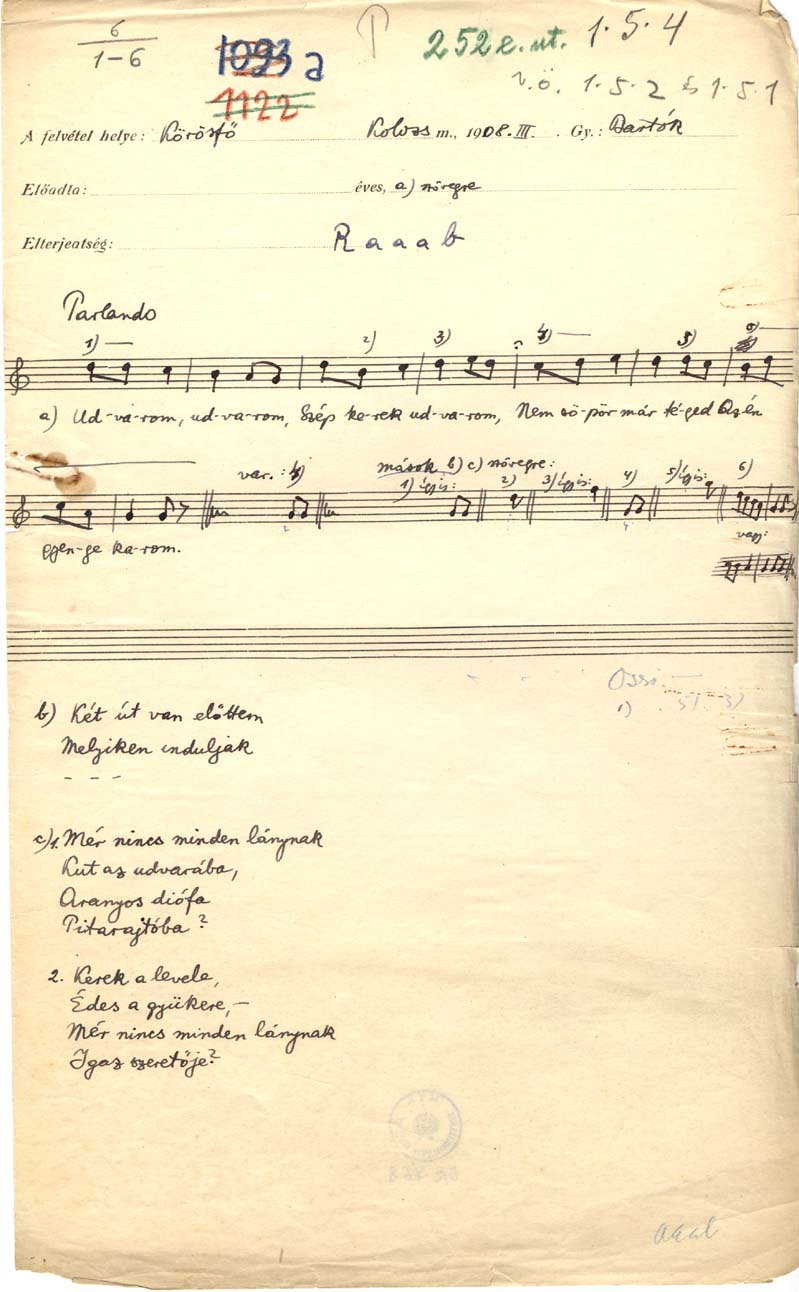 6
1–6
1093 a
1122
252 e. ut.
1·5·4
v.ö. 1·5·2 és 1·5·1
A felvétel helye: Körösfő Kolozs m., 1908. III. Gy.: Bartók
Előadta: éves, a) szövegre
Elterjeatség: R a a a b
Parlando
1) 2) 3) 4) 5) 6)
a) Ud-va-rom, ud-va-rom, Szép ke-rek ud-va-rom, Nem sö-pör már té-ged Az én
var.: 4) mások b) c) szövegre:
1) így is: 2) 3) így is: 4) 5) így is: 6)
gyen-ge ka-rom.
vagy:
1) 5) 3)
b) Két út van előttem
Melyiken induljak
– – –
c) 1. Mér nincs minden lánynak
Kut az udvarába,
Aranyos diófa
Pitarajtóba?
2. Kerek a levele,
Édes a gyükere, –
Mér nincs minden lánynak
Igaz szeretője?